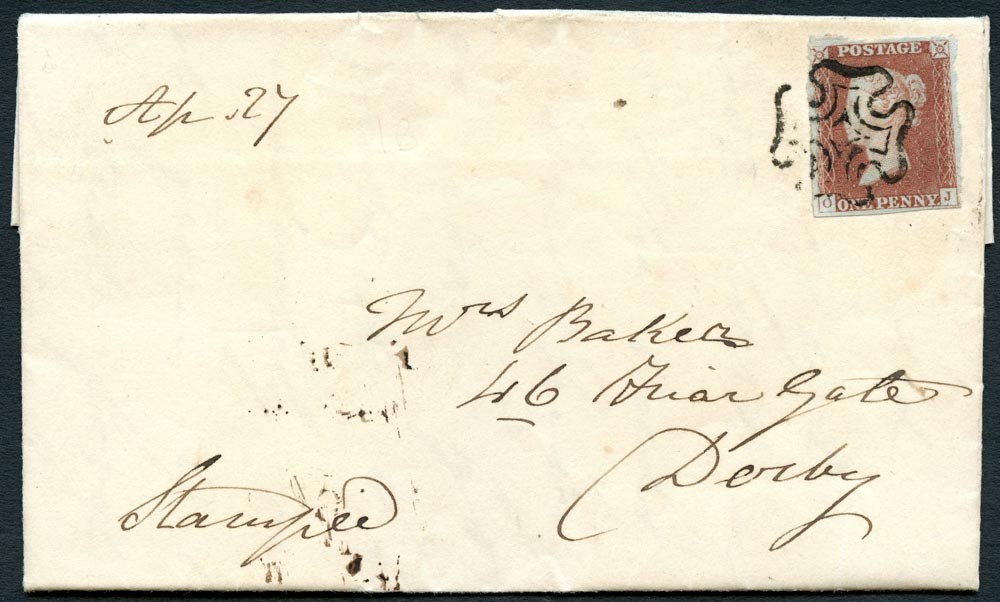 Ap 27
POSTAGE
ONE PENNY
O J
Mrs Baker
46 Friar Gate
Derby
Stamped